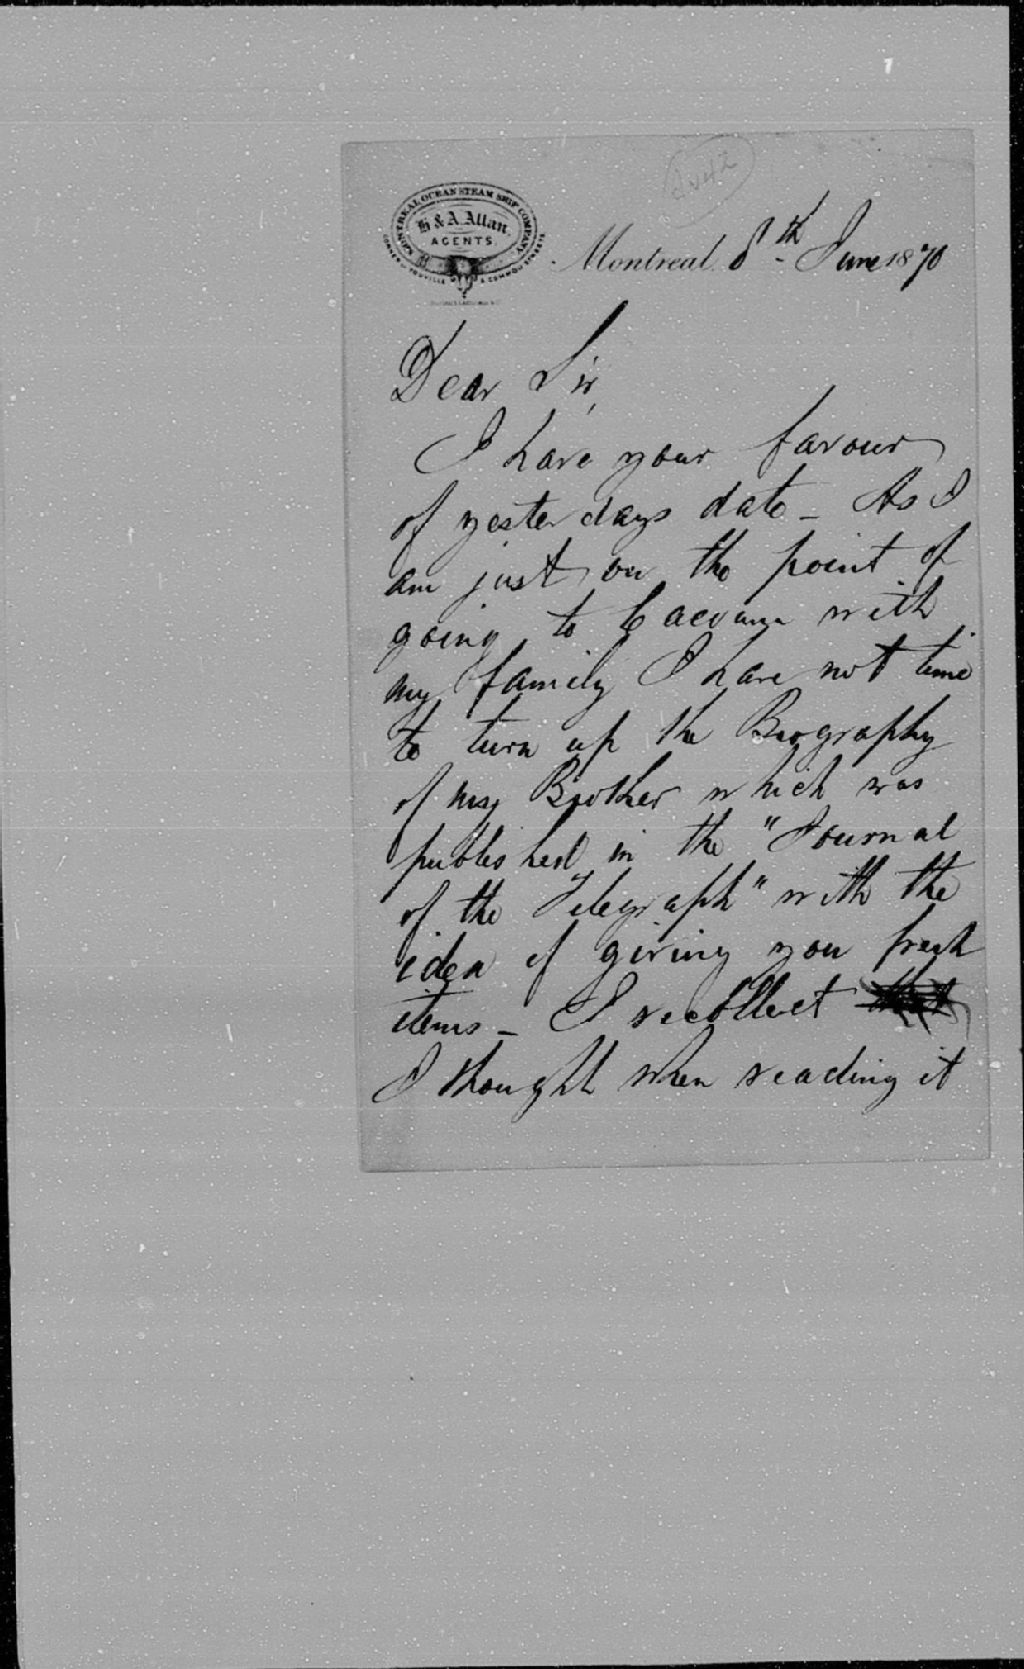 MONTREAL OCEAN STEAM SHIP COMPANY
H & A. Allan.
AGENTS.
Montreal 8th June 1870
Dear Sir,
I have your favour
of yesterdays date - As I
am just on the point of
going to Cacouna with
my family I have not time
to turn up the Biography
of my Brother which was
published in the "Journal
of the Telegraph" with the
idea of giving you fresh
items - I recollect
I thought when reading it